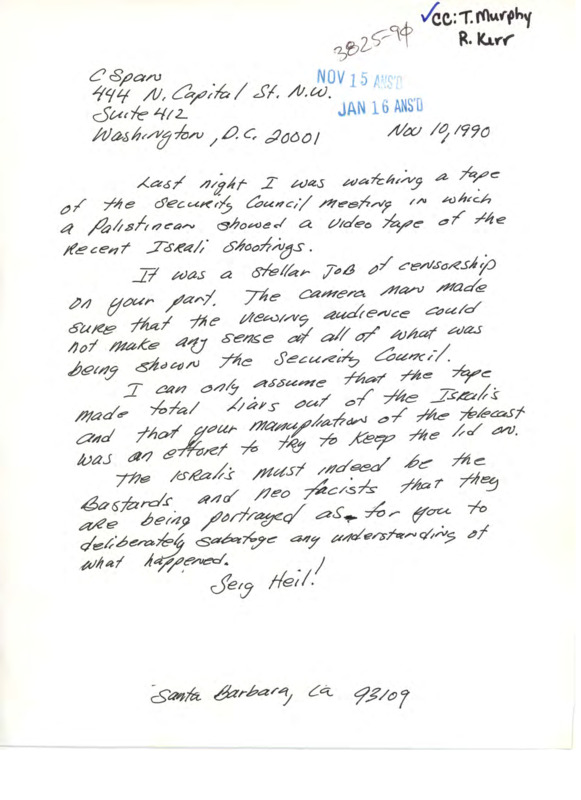 ✓CC: T. Murphy
R. Kerr
3825-90
NOV 15 ANS'D
JAN 16 ANS'D
C Span
444 N. Capital St. N.W.
Suite 412
Washington, D.C. 20001
Nov 10, 1990
Last night I was watching a tape
of the Security Council meeting in which
a Palistinean showed a video tape of the
Recent Israli Shootings.
It was a stellar job of censorship
on your part. The camera man made
sure that the viewing audience could
not make any sense at all of what was
being shown the Security Council.
I can only assume that the tape
made total Liars out of the Isralis
and that your manupliation of the telecast
was an effort to try to keep the lid on.
The Isralis must indeed be the
Bastards and neo facists that they
are being portrayed as for you to
deliberately sabatoge any understanding of
what happened.
Seig Heil!
Santa Barbara, Ca 93109